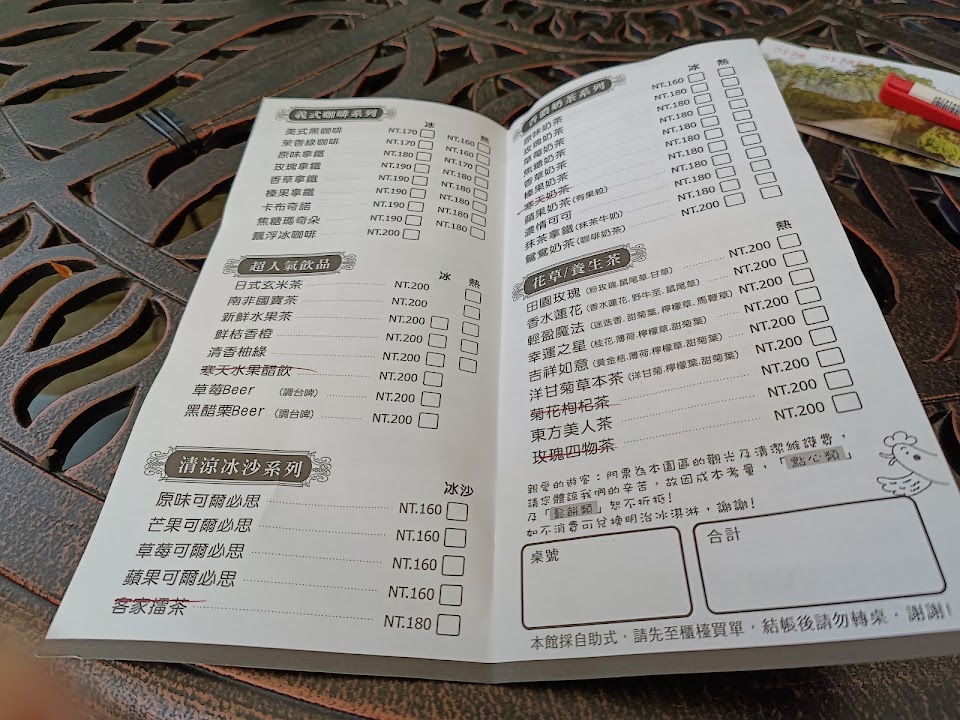 義式咖啡系列
冰 熱
義式黑咖啡 NT.170 NT.160
茉香綠咖啡 NT.170 NT.160
原味拿鐵 NT.180 NT.170
玫瑰拿鐵 NT.190 NT.180
香草拿鐵 NT.190 NT.180
榛果拿鐵 NT.190 NT.180
卡布奇諾 NT.190 NT.180
焦糖瑪奇朵 NT.190 NT.180
飄浮冰咖啡 NT.200
超人氣飲品
冰 熱
日式玄米茶 NT.200
南非國寶茶 NT.200
新鮮水果茶 NT.200
鮮桔香橙 NT.200
清香柚綠 NT.200
寒天水果醋飲 NT.200
草莓Beer (調台啤) NT.200
黑醋栗Beer (調台啤) NT.200
清涼冰沙系列
冰沙
原味可爾必思 NT.160
芒果可爾必思 NT.160
草莓可爾必思 NT.160
蘋果可爾必思 NT.160
客家擂茶 NT.180
奶茶系列
冰 熱
原味奶茶 NT.160
玫瑰奶茶 NT.180
草莓奶茶 NT.180
焦糖奶茶 NT.180
香草奶茶 NT.180
榛果奶茶 NT.180
寒天奶茶 NT.180
蘋果奶茶(有果粒) NT.180
濃情可可 NT.180
抹茶拿鐵(抹茶牛奶) NT.180
鴛鴦奶茶(咖啡奶茶) NT.200
花草/養生茶
熱
田園玫瑰 (粉玫瑰.鼠尾草.甘草) NT.200
香水蓮花 (香水蓮花.野牛至.鼠尾草) NT.200
輕盈魔法 (迷迭香.甜菊葉.檸檬草.馬鞭草) NT.200
幸運之星 (桂花.薄荷.檸檬草.甜菊葉) NT.200
吉祥如意 (黃金桔.薄荷.檸檬草.甜菊葉) NT.200
洋甘菊草本茶 (洋甘菊.檸檬葉.甜菊葉) NT.200
菊花枸杞茶 NT.200
東方美人茶 NT.200
玫瑰四物茶 NT.200
親愛的遊客：門票為本園區的觀光及清潔維護費，
請您體諒我們的辛苦，故因成本考量，「點心類」
及「鬆餅類」恕不折抵！
如不消費可兌換明治冰淇淋，謝謝！
桌號
合計
本館採自助式，請先至櫃檯買單，結帳後請勿轉桌，謝謝！